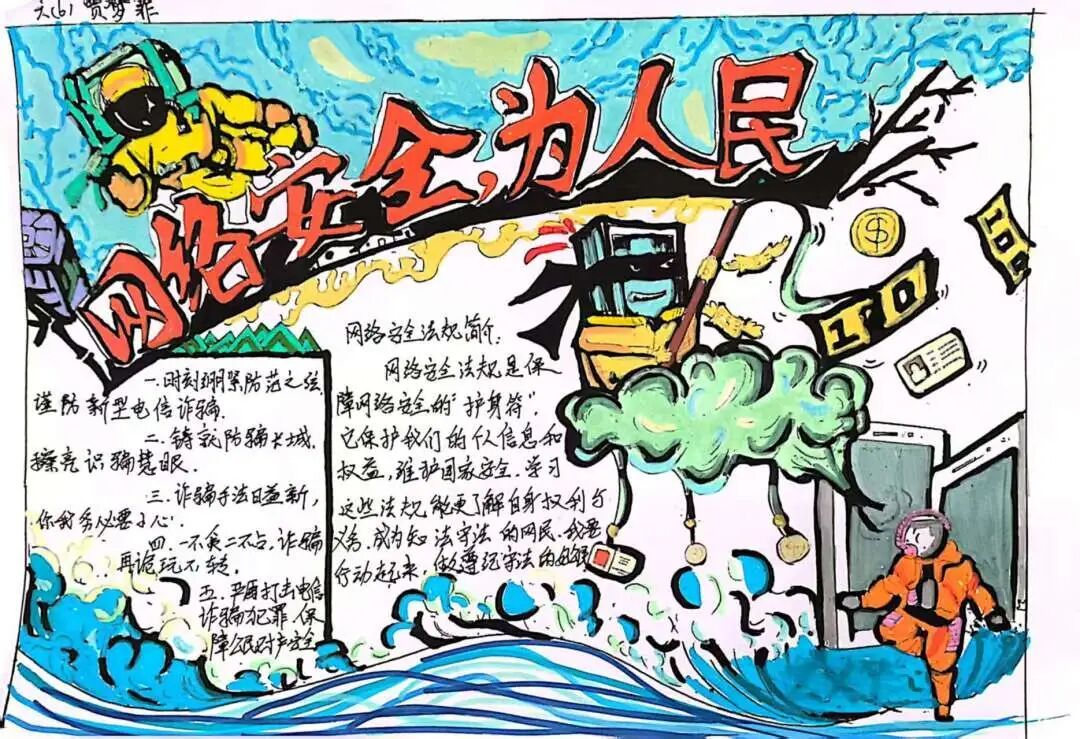 六(6) 贾梦菲
网络安全,为人民
一.时刻绷紧防范之弦
谨防新型电信诈骗.
二.铸就防骗长城,
擦亮识骗慧眼.
三.诈骗手法日益新,
你我务必要小心.
四.一不贪二不占,诈骗
再诡玩不转.
五.严厉打击电信
诈骗犯罪,保
障公民财产安全
网络安全法规简介:
网络安全法规是保
障网络安全的"护身符",
它保护我们的个人信息和
权益,维护国家安全.学习
这些法规,能更了解自身权利与
义务,成为知法守法的网民.我要
行动起来,做遵纪守法的好网
10
$
10